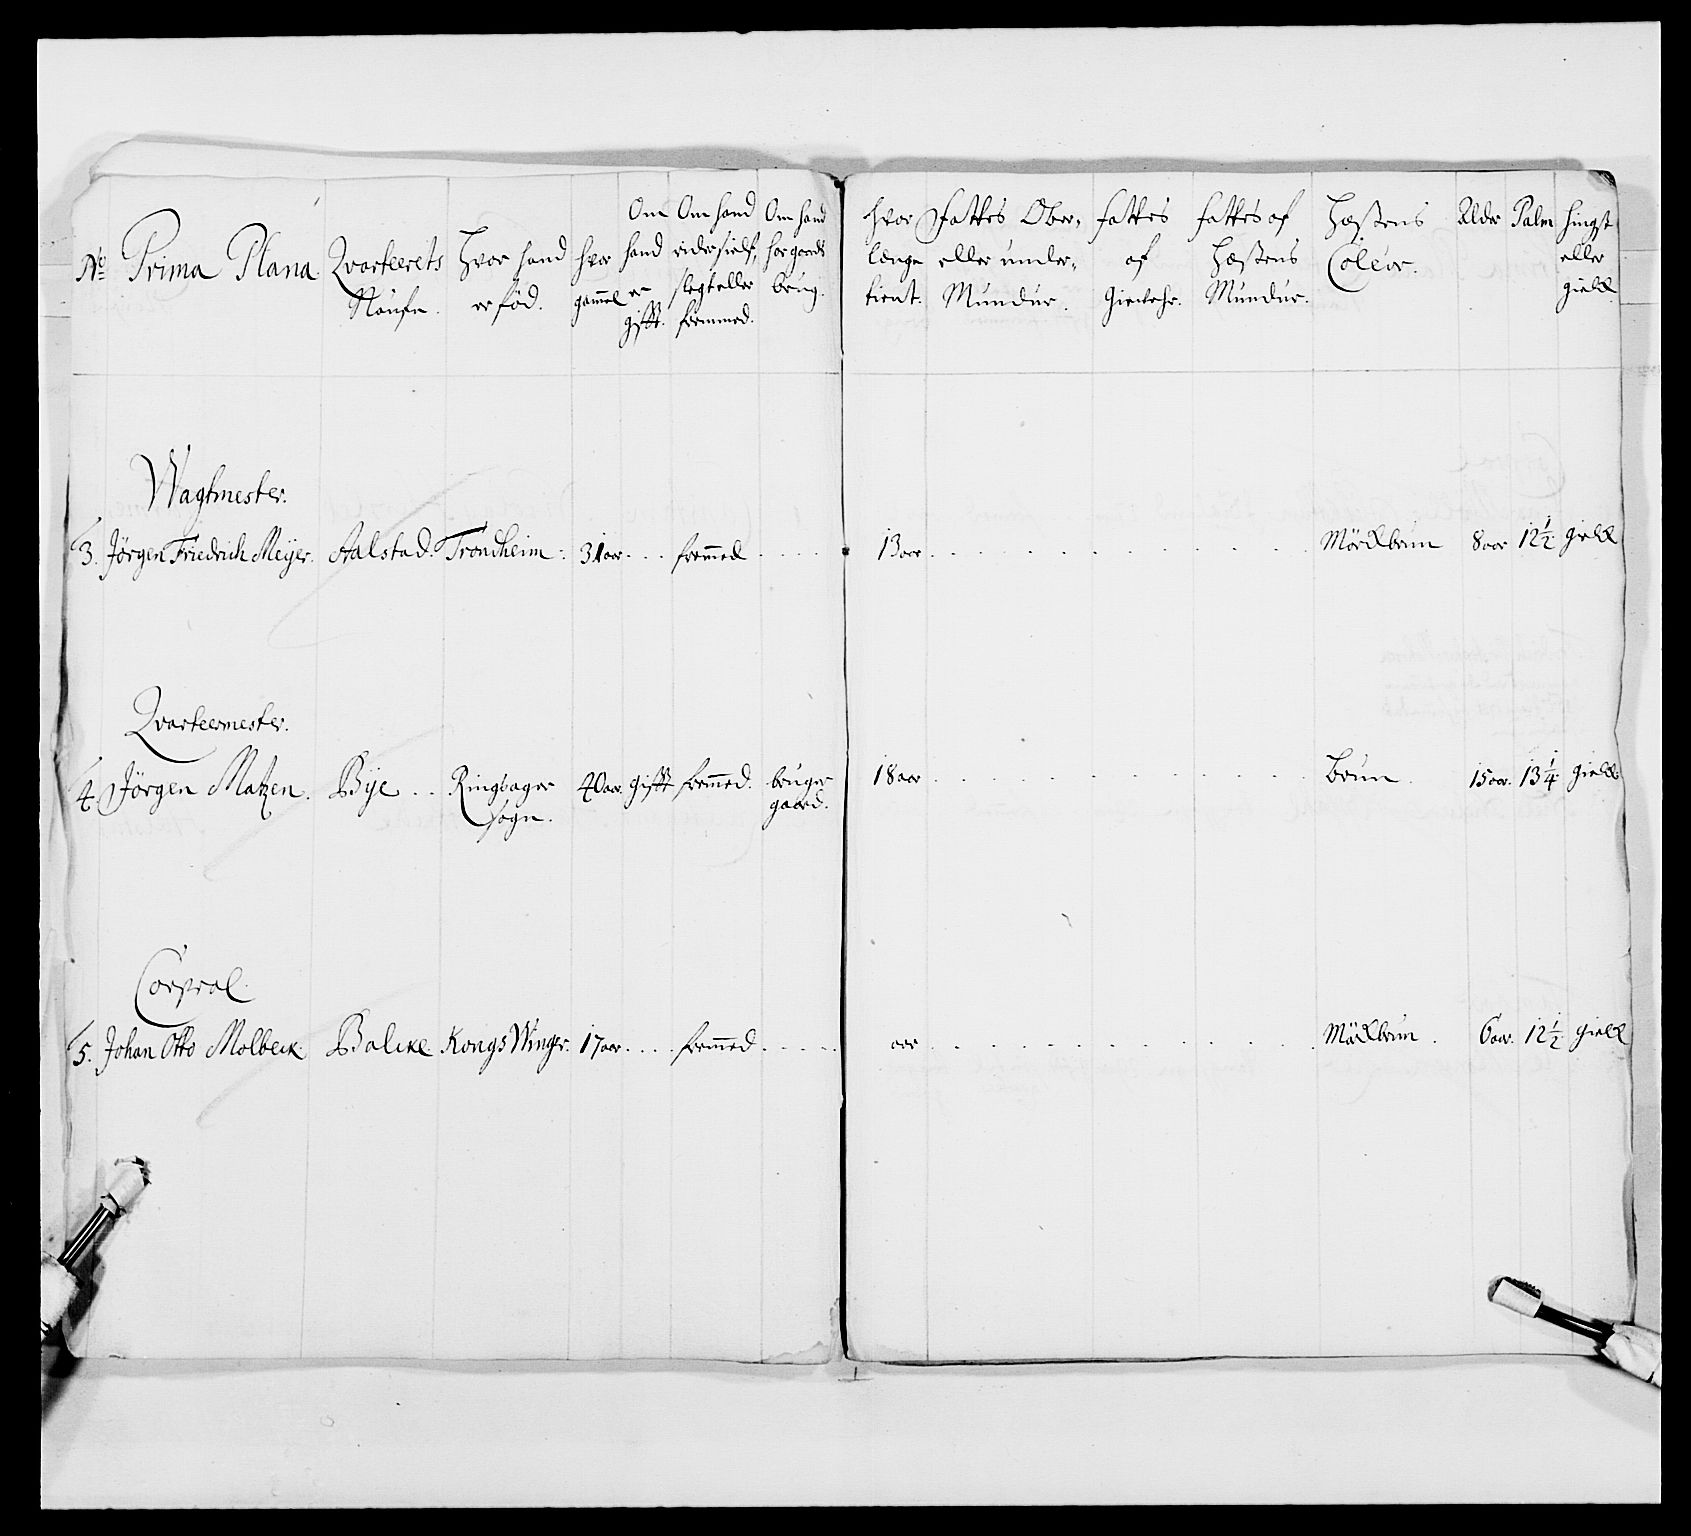 No Prima Plana. Qvarteerets Naufn. Hvor hand er fød. hvor gammel Om hand er gifft. Om hand rider sielf, slegt eller fremmed. Om hand har gaards brug. hvor lenge tient. Fattes Ober- eller under- Mundur. fattes af Giewehr. fattes af Hæstens Mundur. Hæstens Coleur. Alder Palm hingst eller gield.
Wagtmester.
3. Jørgen Friedrich Meÿer. Aalstad. Trondheim. 31 aar. . . fremmed . . . . 13 aar . . . . . . . . . . Mörckbrun 8 aar 12 1/2 gield
Qvarteermester.
4. Jörgen Matzen. Bÿe . . Ringsager 40 aar. gifft fremmed. bruger 18 aar . . . . . . . . . . brun. 15 aar. 13 1/4 gield
sogn. gaard.
Corpral.
5. Johan Otto Molbeck. Balcke Kongs Winger. 17 aar. . . . fremmed. . . . . aar . . . . . . . . . . Mörckbrun. 6 aar. 12 1/2 gield